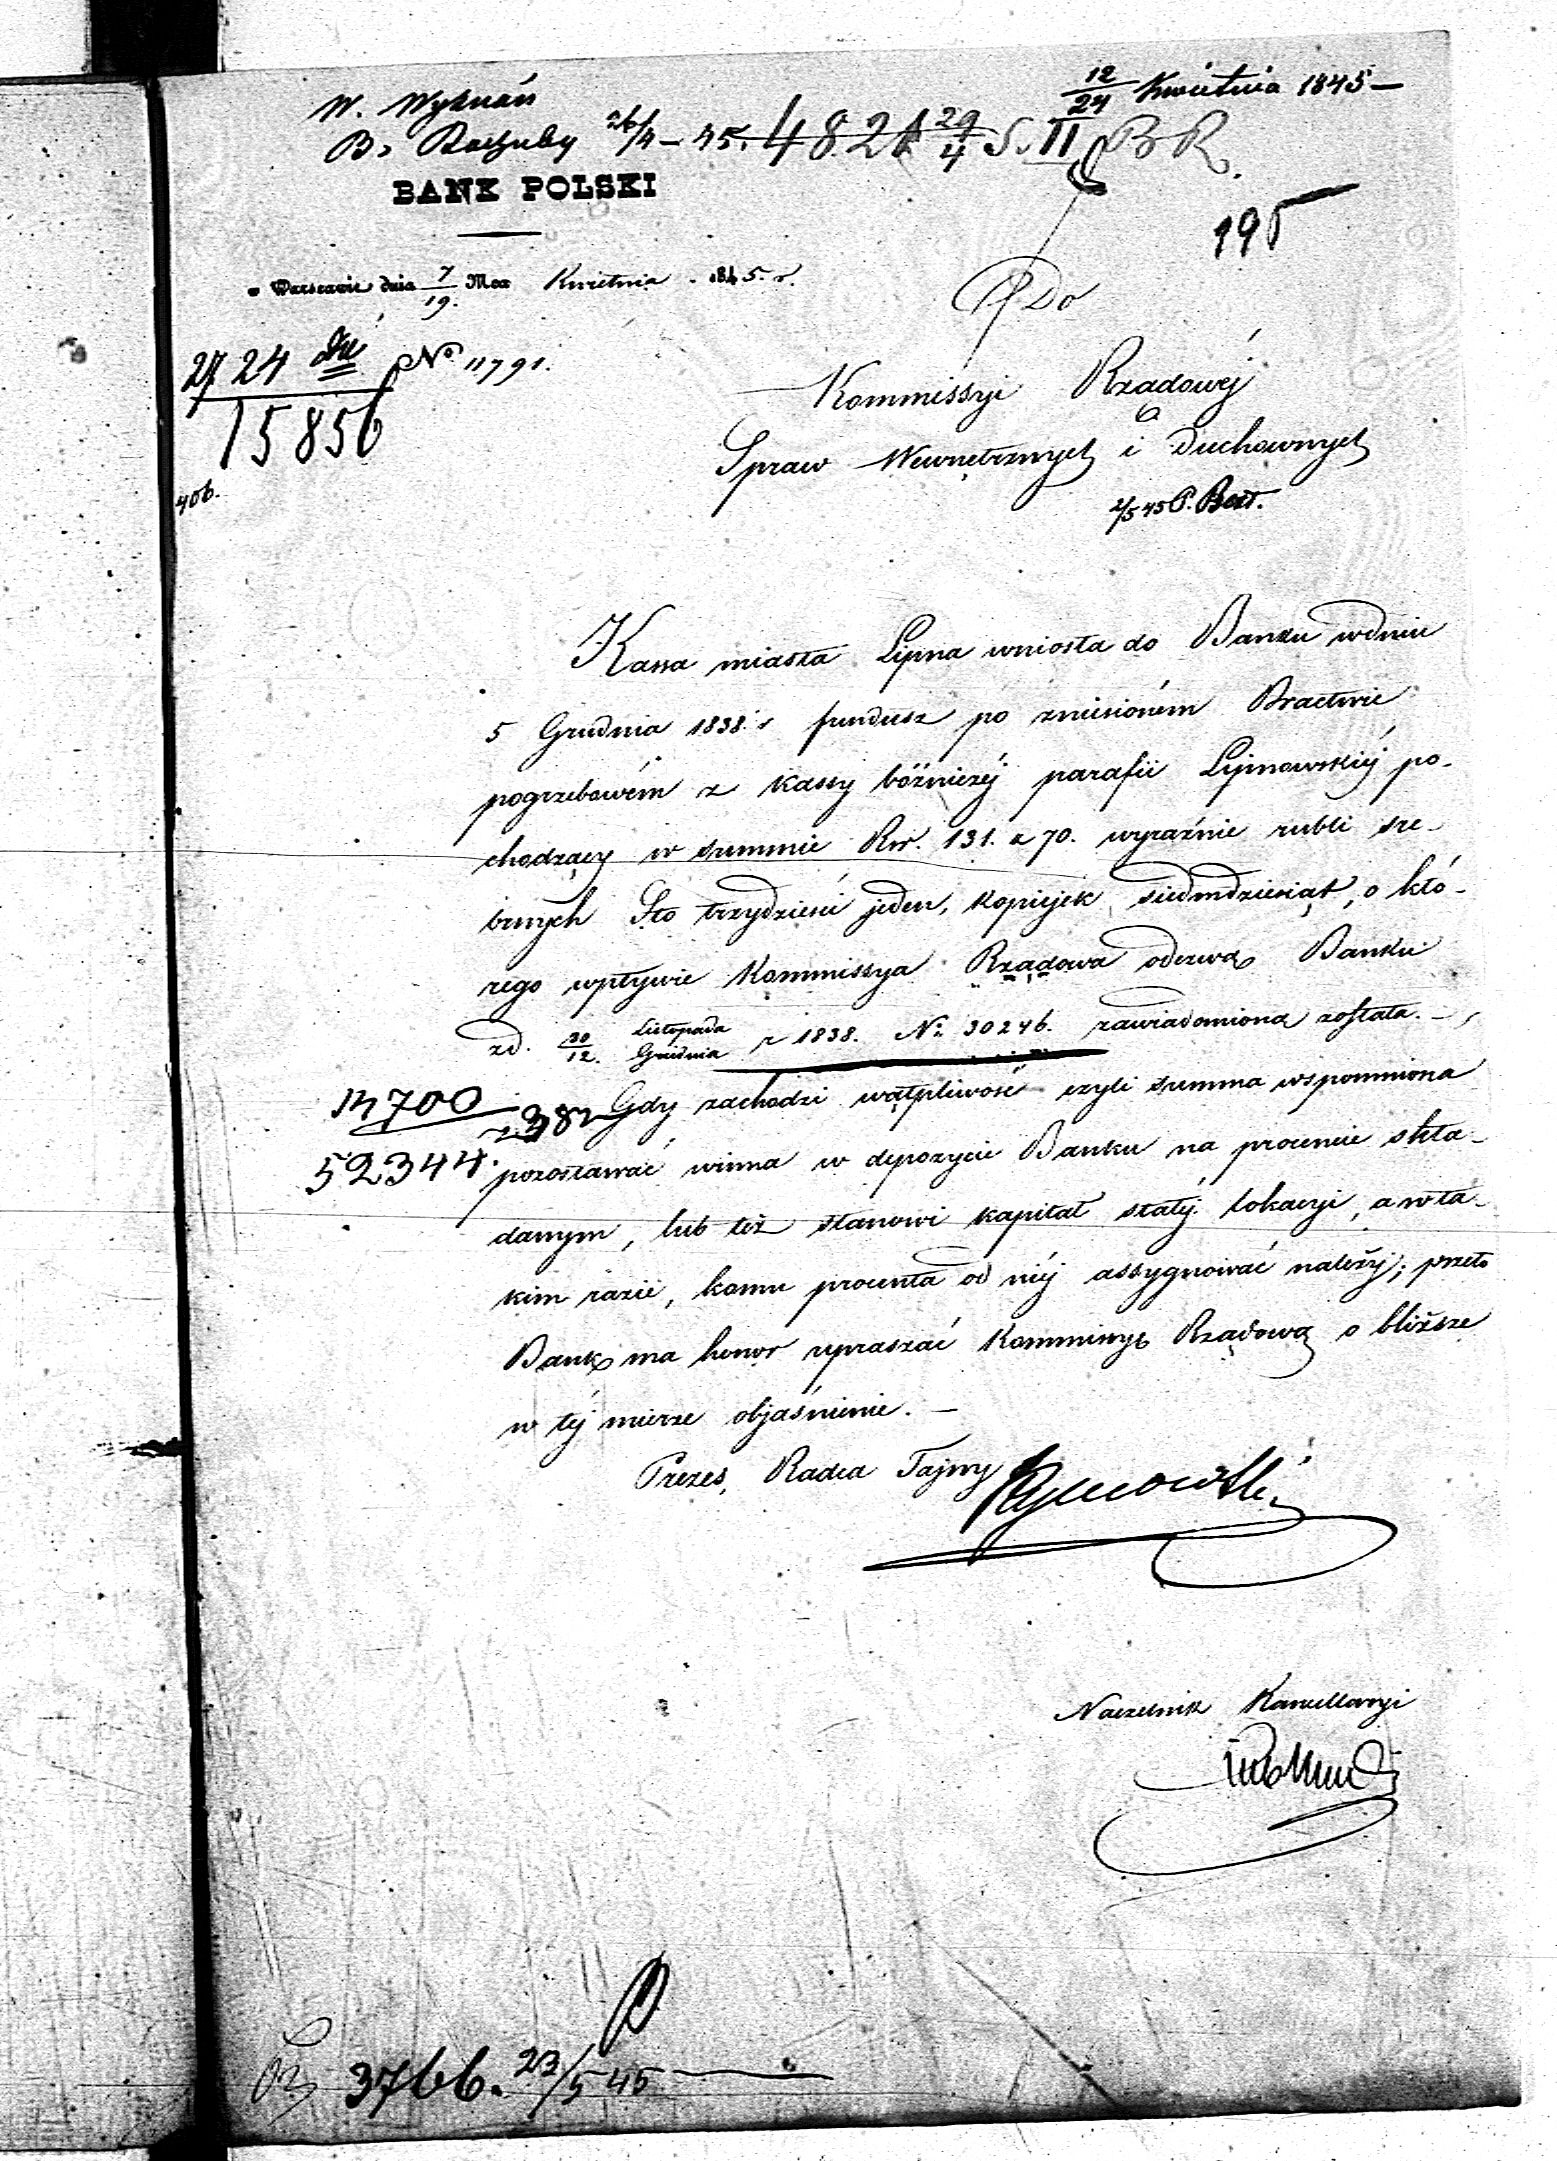 12/24 Kwietnia 1845 —
W. Wyznań
B. Rachuby 26/4 – 45. 4821 29/4 S. II B R.
BANK POLSKI
195
w Warszawie dnia 7/19. Mca Kwietnia 1845. r.
Do
2724
No 11791.
15856
Kommissyi Rządowéj
Spraw Wewnętrznych i Duchownych
406.
2/5 45 P.
Kassa miasta Lipna wniosła do Banku wdniu
5 Grudnia 1838. r fundusz po zniesioném Bractwie
pogrzebowém z kassy bóżniczéj parafii Lipnowskiéj po-
chodzący w summie Rsr. 131. k 70. wyraźnie rubli sre-
brnych Sto trzydzieści jeden, kopiejek siedmdziesiąt, o któ-
rego wpływie Kommissya Rządowa odezwą Banku
zd. 30/12. Listopada/Grudnia r 1838. No 30246. zawiadomioną została. —
14700
Gdy zachodzi wątpliwość czyli summa wspomniona
52344.
pozostawać winna w depozycie Banku na procencie skła-
danym, lub też stanowi kapitał stałéj lokacyi, a w ta-
kim razie, komu procenta od niéj assygnować należy; przeto
Bank ma honor upraszać Kommissyą Rządową o bliższe
w téj mierze objaśnienie. —
Prezes, Radca Tajny
Naczelnik Kancellaryi
3766. 23/5 45